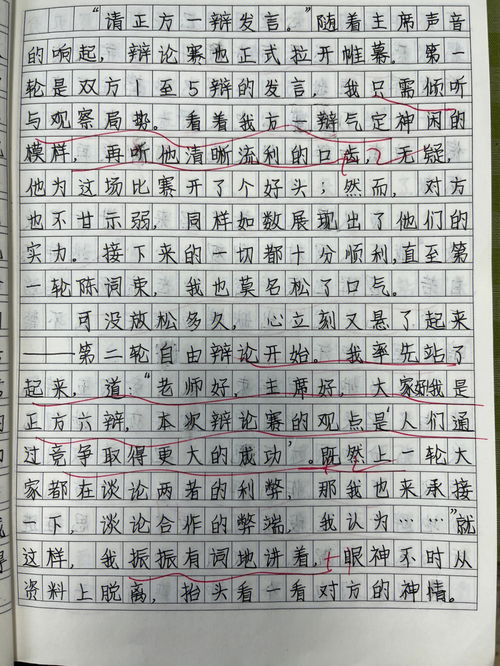 “请正方一辩发言。”随着主席声音
的响起，辩论赛也正式拉开帷幕。第一
轮是双方1至5辩的发言，我只需倾听
与观察局势。看着我方一辩气定神闲的
模样，再听他清晰流利的口齿，无疑，
他为这场比赛开了个好头；然而，对方
也不甘示弱，同样如数展现出了他们的
实力。接下来的一切都十分顺利，直至第
一轮陈词束，我也莫名松了口气。
可没放松多久，心立刻又悬了起来
——第二轮自由辩论开始。我率先站了
起来，道：“老师好，主席好，大家好我是
正方六辩，本次辩论赛的观点是‘人们通
过竞争取得更大的成功’。既然上一轮大
家都在谈论两者的利弊，那我也来承接
一下，谈论合作的弊端，我认为……”就
这样，我振振有词地讲着，眼神不时从
资料上脱离，抬头看一看对方的神情。